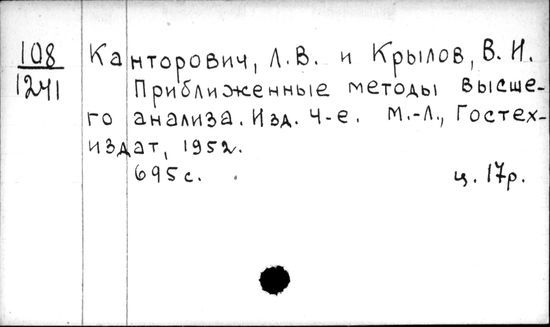 108 Канторович, Л.В. и Крылов, В.И.
1241 Приближенные методы высше-
го анализа. Изд. 4-е. М.-Л., Гостех-
издат, 1952.
695с. ц. 17р.